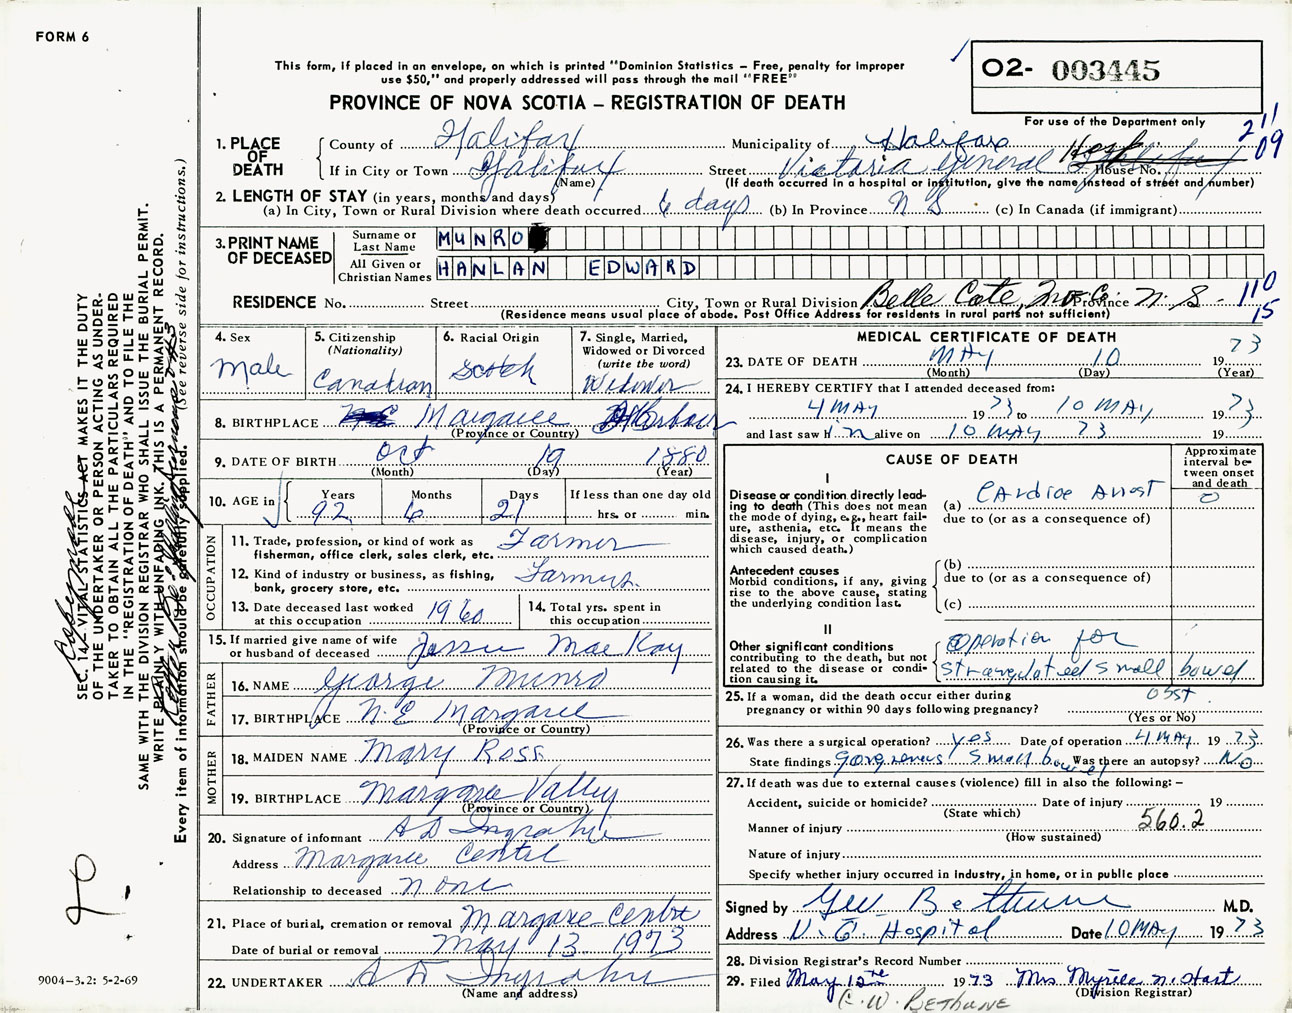 FORM 6
This form, if placed in an envelope, on which is printed "Dominion Statistics – Free, penalty for improper
use $50," and properly addressed will pass through the mail "FREE"
PROVINCE OF NOVA SCOTIA – REGISTRATION OF DEATH
O2- 003445
For use of the Department only
211
09
1. PLACE OF DEATH
County of Halifax Municipality of Halifax
If in City or Town Halifax (Name) Street Victoria General Hosp House No.
(If death occurred in a hospital or institution, give the name instead of street and number)
2. LENGTH OF STAY (in years, months and days)
(a) In City, Town or Rural Division where death occurred 6 days (b) In Province N S (c) In Canada (if immigrant)
3. PRINT NAME OF DECEASED
Surname or Last Name MUNRO
All Given or Christian Names HANLAN EDWARD
RESIDENCE No. Street City, Town or Rural Division Belle Cote, Inv. Co. Province N. S -
110
15
(Residence means usual place of abode. Post Office Address for residents in rural parts not sufficient)
4. Sex Male
5. Citizenship (Nationality) Canadian
6. Racial Origin Scotch
7. Single, Married, Widowed or Divorced (write the word) Widower
8. BIRTHPLACE Margaree Harbour
(Province or Country)
9. DATE OF BIRTH Oct 19 1880
(Month) (Day) (Year)
10. AGE in Years 92 Months 6 Days 21 If less than one day old hrs. or min.
OCCUPATION
11. Trade, profession, or kind of work as fisherman, office clerk, sales clerk, etc. Farmer
12. Kind of industry or business, as fishing, bank, grocery store, etc. Farming
13. Date deceased last worked at this occupation 1960 14. Total yrs. spent in this occupation
15. If married give name of wife or husband of deceased Jessie MacKay
FATHER
16. NAME George Munro
17. BIRTHPLACE N. E Margaree
(Province or Country)
MOTHER
18. MAIDEN NAME Mary Ross
19. BIRTHPLACE Margaree Valley
(Province or Country)
20. Signature of informant A D Ingraham
Address Margaree Centre
Relationship to deceased none
21. Place of burial, cremation or removal Margaree Centre
Date of burial or removal May 13 1973
22. UNDERTAKER A D Ingraham
(Name and address)
MEDICAL CERTIFICATE OF DEATH
23. DATE OF DEATH MAY 10 19 73
(Month) (Day) (Year)
24. I HEREBY CERTIFY that I attended deceased from:
4 MAY 19 73 to 10 MAY 19 73
and last saw him alive on 10 MAY 73 19
CAUSE OF DEATH
Approximate interval between onset and death
I
Disease or condition directly leading to death (This does not mean the mode of dying, e.g., heart failure, asthenia, etc. It means the disease, injury, or complication which caused death.)
(a) Cardiac Arrest 0
due to (or as a consequence of)
Antecedent causes
Morbid conditions, if any, giving rise to the above cause, stating the underlying condition last.
(b)
due to (or as a consequence of)
(c)
II
Other significant conditions contributing to the death, but not related to the disease or condition causing it.
Operation for
strangulated small bowel
obst
25. If a woman, did the death occur either during pregnancy or within 90 days following pregnancy?
(Yes or No)
26. Was there a surgical operation? yes Date of operation 4 MAY 19 73
State findings Gangrenous small bowel Was there an autopsy? No
27. If death was due to external causes (violence) fill in also the following: –
Accident, suicide or homicide? Date of injury 19
(State which)
Manner of injury 560.2
(How sustained)
Nature of injury
Specify whether injury occurred in industry, in home, or in public place
Signed by Geo Bethune M.D.
Address V. G. Hospital Date 10 MAY 19 73
28. Division Registrar's Record Number
29. Filed May 12th 1973 Mrs Myrtle N. Hart
(Division Registrar)
C. W. BETHUNE
SEC. 14, VITAL STATISTICS ACT MAKES IT THE DUTY
OF THE UNDERTAKER OR PERSON ACTING AS UNDER-
TAKER TO OBTAIN ALL THE PARTICULARS REQUIRED
IN THE "REGISTRATION OF DEATH" AND TO FILE THE
SAME WITH THE DIVISION REGISTRAR WHO SHALL ISSUE THE BURIAL PERMIT.
WRITE PLAINLY WITH UNFADING INK. THIS IS A PERMANENT RECORD.
Every item of information should be carefully supplied. (See reverse side for instructions.)
9004–3.2: 5-2-69